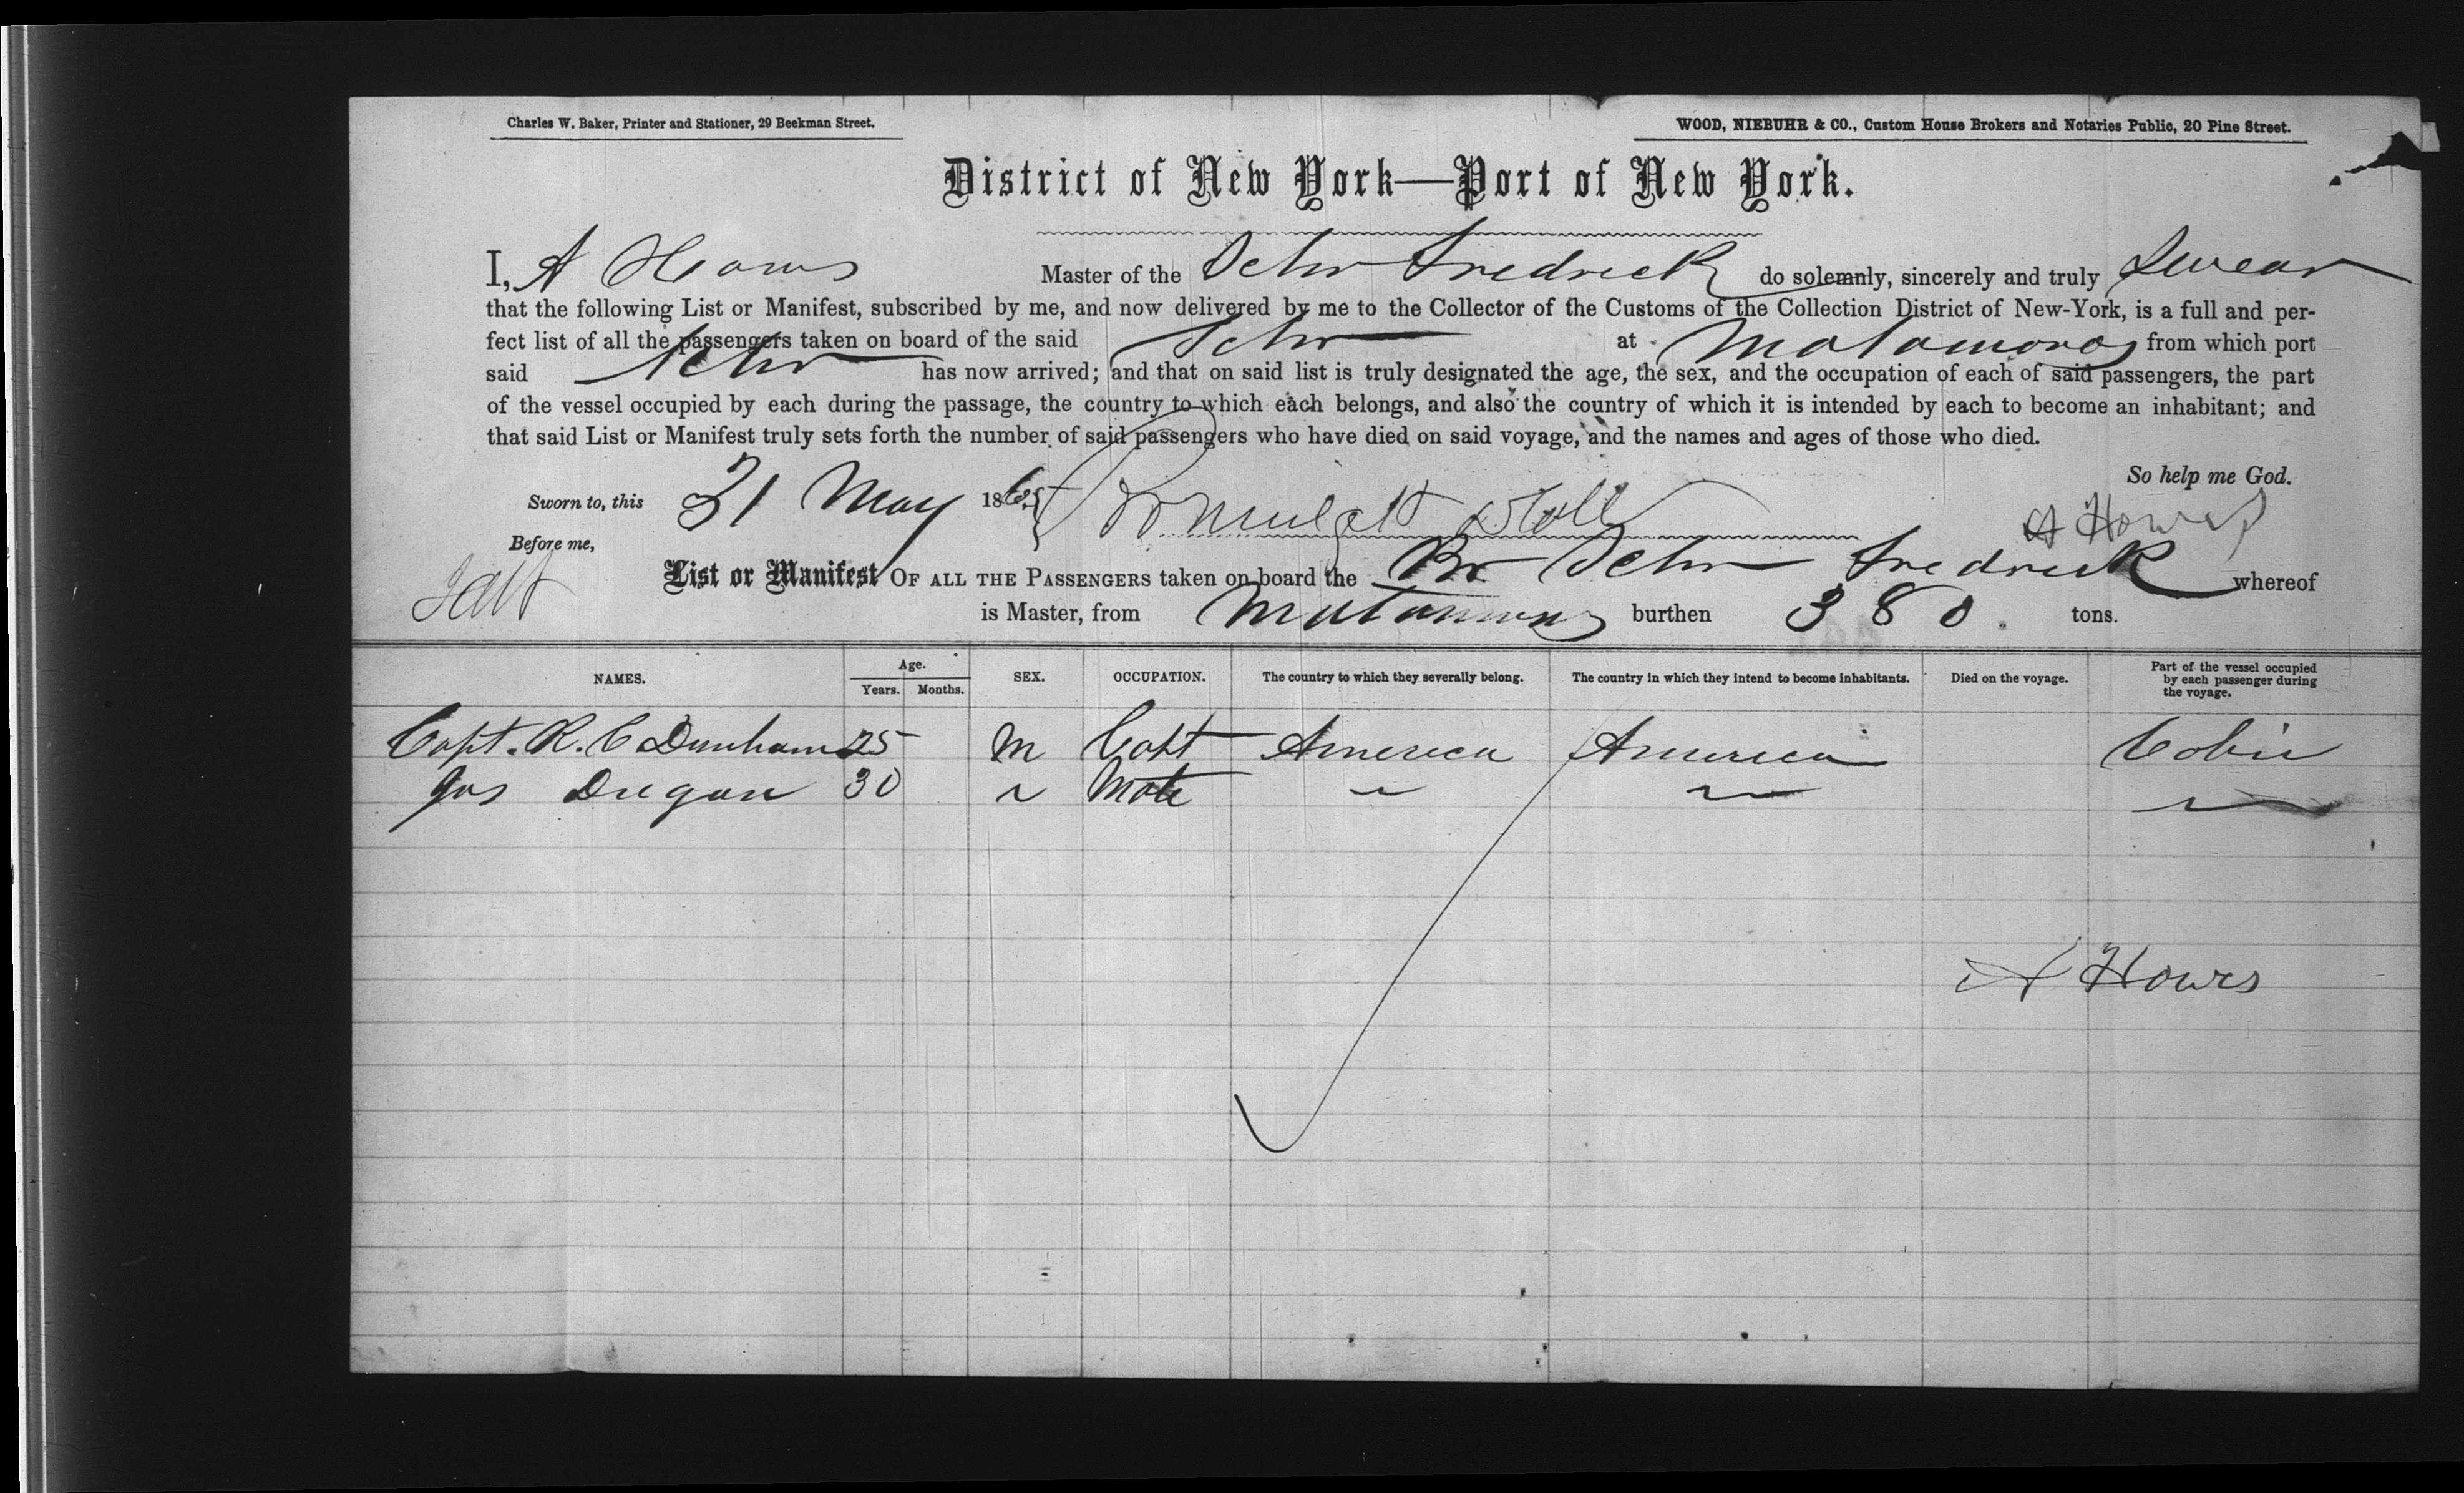 Charles W. Baker, Printer and Stationer, 29 Beekman Street.
WOOD, NIEBUHR & CO., Custom House Brokers and Notaries Public, 20 Pine Street.
District of New York—Port of New York.
I, A Hows Master of the Schr Fredrick do solemnly, sincerely and truly Swear
that the following List or Manifest, subscribed by me, and now delivered by me to the Collector of the Customs of the Collection District of New-York, is a full and per-
fect list of all the passengers taken on board of the said Schr at Matamoras from which port
said Schr has now arrived; and that on said list is truly designated the age, the sex, and the occupation of each of said passengers, the part
of the vessel occupied by each during the passage, the country to which each belongs, and also the country of which it is intended by each to become an inhabitant; and
that said List or Manifest truly sets forth the number of said passengers who have died on said voyage, and the names and ages of those who died.
So help me God.
Sworn to, this 31 May 1865
A Howes
Before me,
List or Manifest OF ALL THE PASSENGERS taken on board the Br Schr Fredrick whereof
is Master, from Matamoras burthen 380 tons.
NAMES. Age. Years. Months. SEX. OCCUPATION. The country to which they severally belong. The country in which they intend to become inhabitants. Died on the voyage. Part of the vessel occupied by each passenger during the voyage.
Capt. R. C Dunham 25 M Capt America America Cabin
Jas Dugan 30 " Mate " " "
A Howes